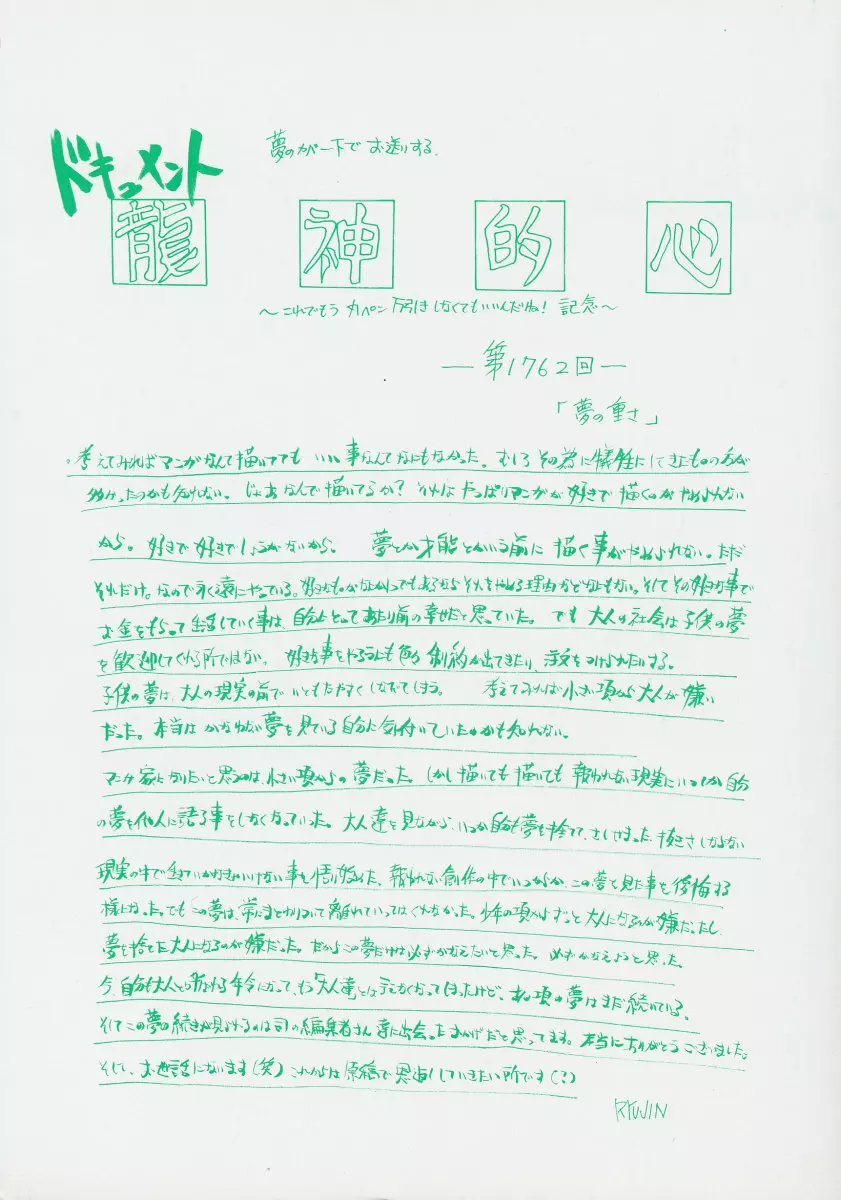 ドキュメント
夢のカバー下でお送りする。
龍神的心
〜これでもうカペン下引きしなくてもいいんだね！ 記念〜
―第1762回―
「夢の重さ」
考えてみればマンガなんて描いてても いい事なんてなにもなかった。むしろその為に犠牲にしてきたものの方が
多かったのかも知れない。じゃあなんで描いてるか？ それはやっぱりマンガが好きで描くのがやめられない
から。好きで好きでしょうがないから。 夢とか才能とかいう前に 描く事がやめられない。ただ
それだけ。なので永遠にやっている。好きなものがなにかしらでもあるから それをやめる理由などなにもない。そしてその好きな事で
お金をもらって生活していく事は、自分にとってあたり前の幸せだと思っていた。でも 大人の社会は子供の夢
を歓迎してくれる所ではない。 好きな事をやるにも色々制約が出てきたり、注文をつけられたりする。
子供の夢は、大人の現実の前でいともたやすくしなびてしまう。 考えてみれば小さい頃から大人が嫌い
だった。本当は かなわない夢を見ている自分に気付いていたのかも知れない。
マンガ家になりたいと思うのは、小さい頃からの夢だった。しかし描いても描いても報われない現実にいつしか自分
の夢を他人に語る事をしなくなっていた。大人達を見ながら、いつか自分も夢を捨て、
現実の中で生きていかなきゃいけない事を悟り始めた、報われない創作の中でいつからか、この夢を見た事を後悔する
様になった。でもこの夢は、常にまとわりついて離れていってはくれなかった。少年の頃からずっと大人になるのが嫌だったし、
夢を捨てた大人になるのが嫌だった。だからこの夢だけは必ずかなえたいと思った。必ずかなえようと思った。
今、自分も大人と呼ばれる年令になって、もう「大人達」とは言えなくなってしまったけど、あの頃の夢はまだ続いている。
そしてこの夢の続きが見られるのは司の編集者さん達に出会ったおかげだと思ってます。本当にありがとうございました。
そして、お世話になります(笑) これからは原稿で恩返ししていきたい所です(?)
RYUJIN